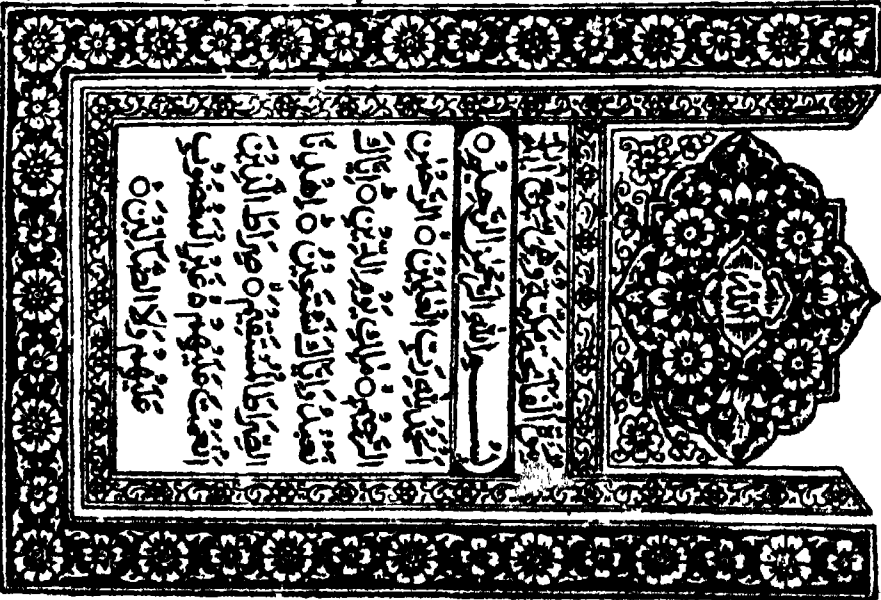 سُوْرَةُ الْفَاتِحَةِ مَكِّيَّةٌ وَّهِيَ سَبْعُ اٰيٰتٍ
بِسْمِ اللّٰهِ الرَّحْمٰنِ الرَّحِيْمِ ○
اَلْحَمْدُ لِلّٰهِ رَبِّ الْعٰلَمِيْنَ ○ الرَّحْمٰنِ
الرَّحِيْمِ ○ مٰلِكِ يَوْمِ الدِّيْنِ ○ اِيَّاكَ
نَعْبُدُ وَاِيَّاكَ نَسْتَعِيْنُ ○ اِهْدِنَا
الصِّرَاطَ الْمُسْتَقِيْمَ ○ صِرَاطَ الَّذِيْنَ
اَنْعَمْتَ عَلَيْهِمْ ○ غَيْرِ الْمَغْضُوْبِ
عَلَيْهِمْ وَلَا الضَّآلِّيْنَ ○